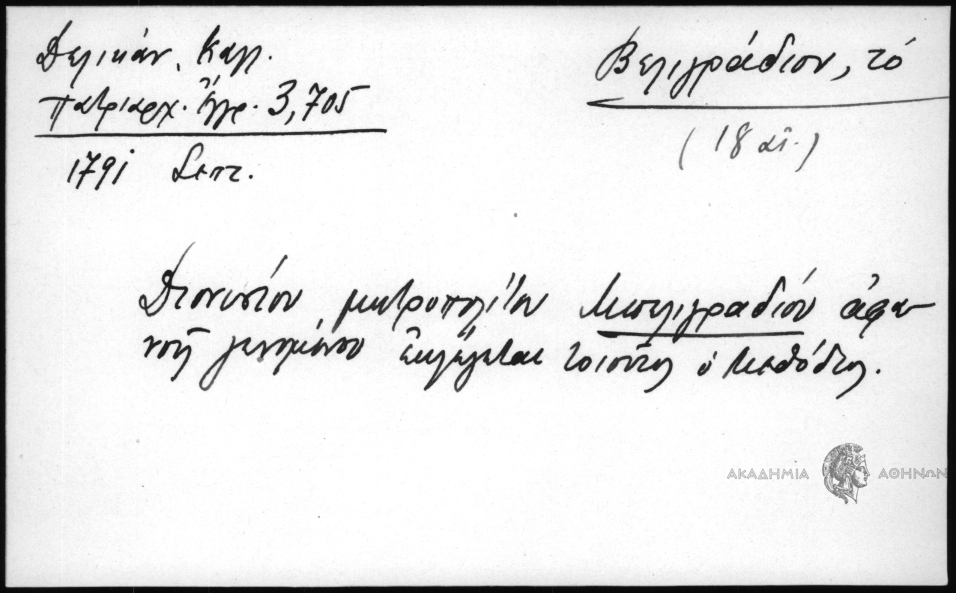 Δελικάν. Καλλ.
Πατριαρχ. Ἔγγρ. 3,705
1791 Σεπτ.
Βελιγράδιον, τό
(18 αἰ.)
Διονυσίου μητροπολίτου Μπελιγραδίου ἀφα-
νοῦς γενομένου ἐκλέγεται τοιοῦτος ὁ Μεθόδιος.
ΑΚΑΔΗΜΙΑ ΑΘΗΝΩΝ